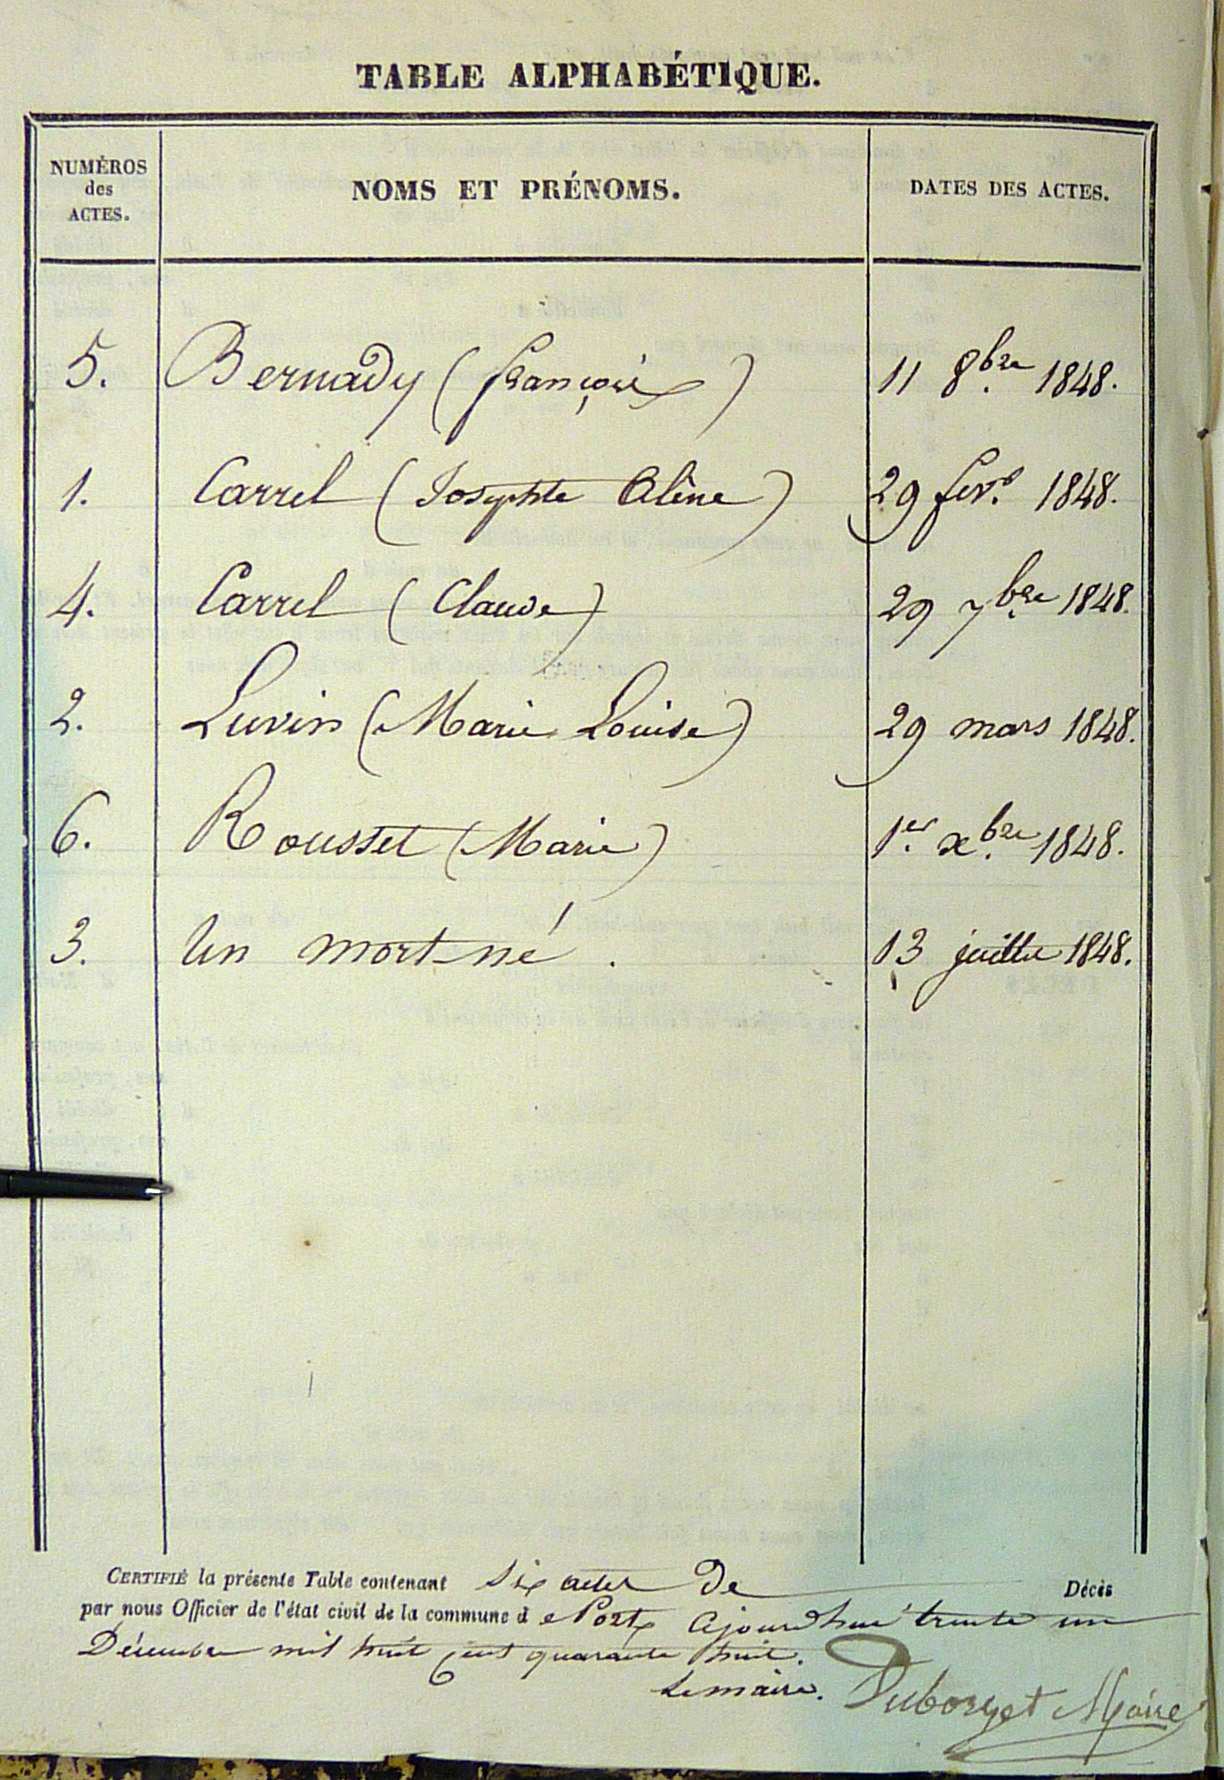 TABLE ALPHABÉTIQUE.
NUMÉROS des ACTES. NOMS ET PRÉNOMS. DATES DES ACTES.
5. Bernady (françois) 11 8bre 1848.
1. Carrel (Josephte Alêne) 29 fevr. 1848.
4. Carrel (Claude) 29 7bre 1848.
2. Luvin (Marie Louise) 29 mars 1848.
6. Rousset (Marie) 1er xbre 1848.
3. Un mort-né. 13 juillet 1848.
CERTIFIÉ la présente Table contenant six actes De Décès
par nous Officier de l'état civil de la commune d e Port ajourd'hui trente un
Décembre mil huit cent quarante huit.
Le maire. Duborget Maire